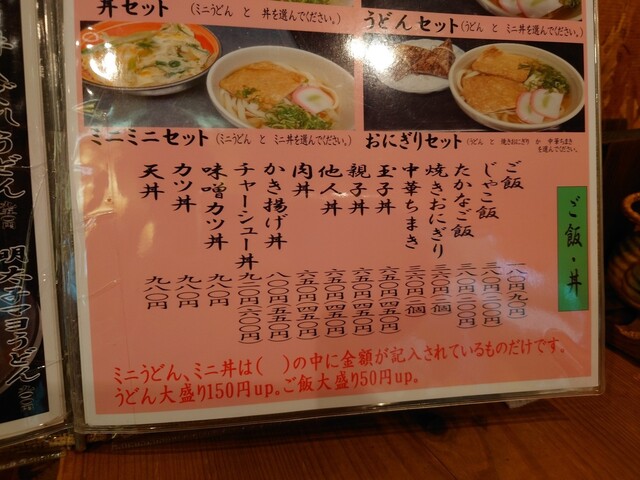 丼セット(ミニうどん と 丼を選んでください。)
うどんセット(うどん と ミニ丼を選んでください。)
ミニミニセット(ミニうどん と ミニ丼を選んでください。)
おにぎりセット(うどん と 焼きおにぎり か 中華ちまきを選んでください。)
ご飯・丼
ご飯 一八〇円 九〇円
じゃこ飯 三八〇円 二〇〇円
たかなご飯 三八〇円 二〇〇円
焼きおにぎり 三〇円(二個)
中華ちまき 三五〇円(二個)
玉子丼 六五〇円 四五〇円
親子丼 六五〇円 四五〇円
他人丼 六五〇円 四五〇円
肉丼 六五〇円 四五〇円
かき揚げ丼 八〇〇円 五五〇円
チャーシュー丼 九二〇円 六〇〇円
味噌カツ丼 九八〇円
カツ丼 九八〇円
天丼 九八〇円
ミニうどん、ミニ丼は( )の中に金額が記入されているものだけです。
うどん大盛り150円up。ご飯大盛り50円up。
明太子マヨうどん